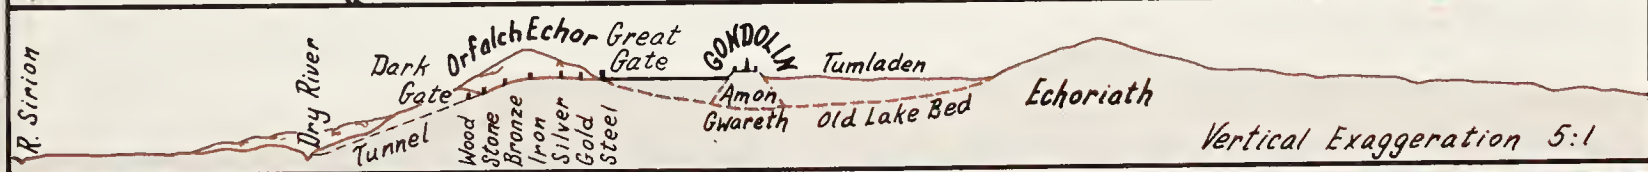 R. Sirion
Dry River
Tunnel
Dark
Gate
Orfalch Echor
Wood
Stone
Bronze
Iron
Silver
Gold
Steel
Great
Gate
GONDOLIN
Amon
Gwareth
Tumladen
Old Lake Bed
Echoriath
Vertical Exaggeration 5:1